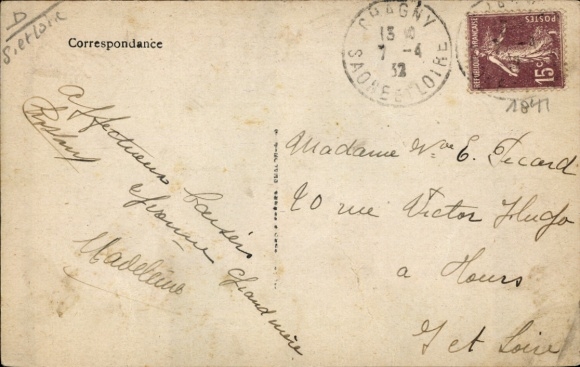 D
S. et Loire
Correspondance
CHAGNY
13
7 - 4
32
SAONE-ET-LOIRE
POSTES
REPUBLIQUE FRANÇAISE
15c
1841
Affectueux baisers
Yvonne Grand mère
Madeleine
Madame Vve E. Picard
20 rue Victor Hugo
a Tours
I et Loire